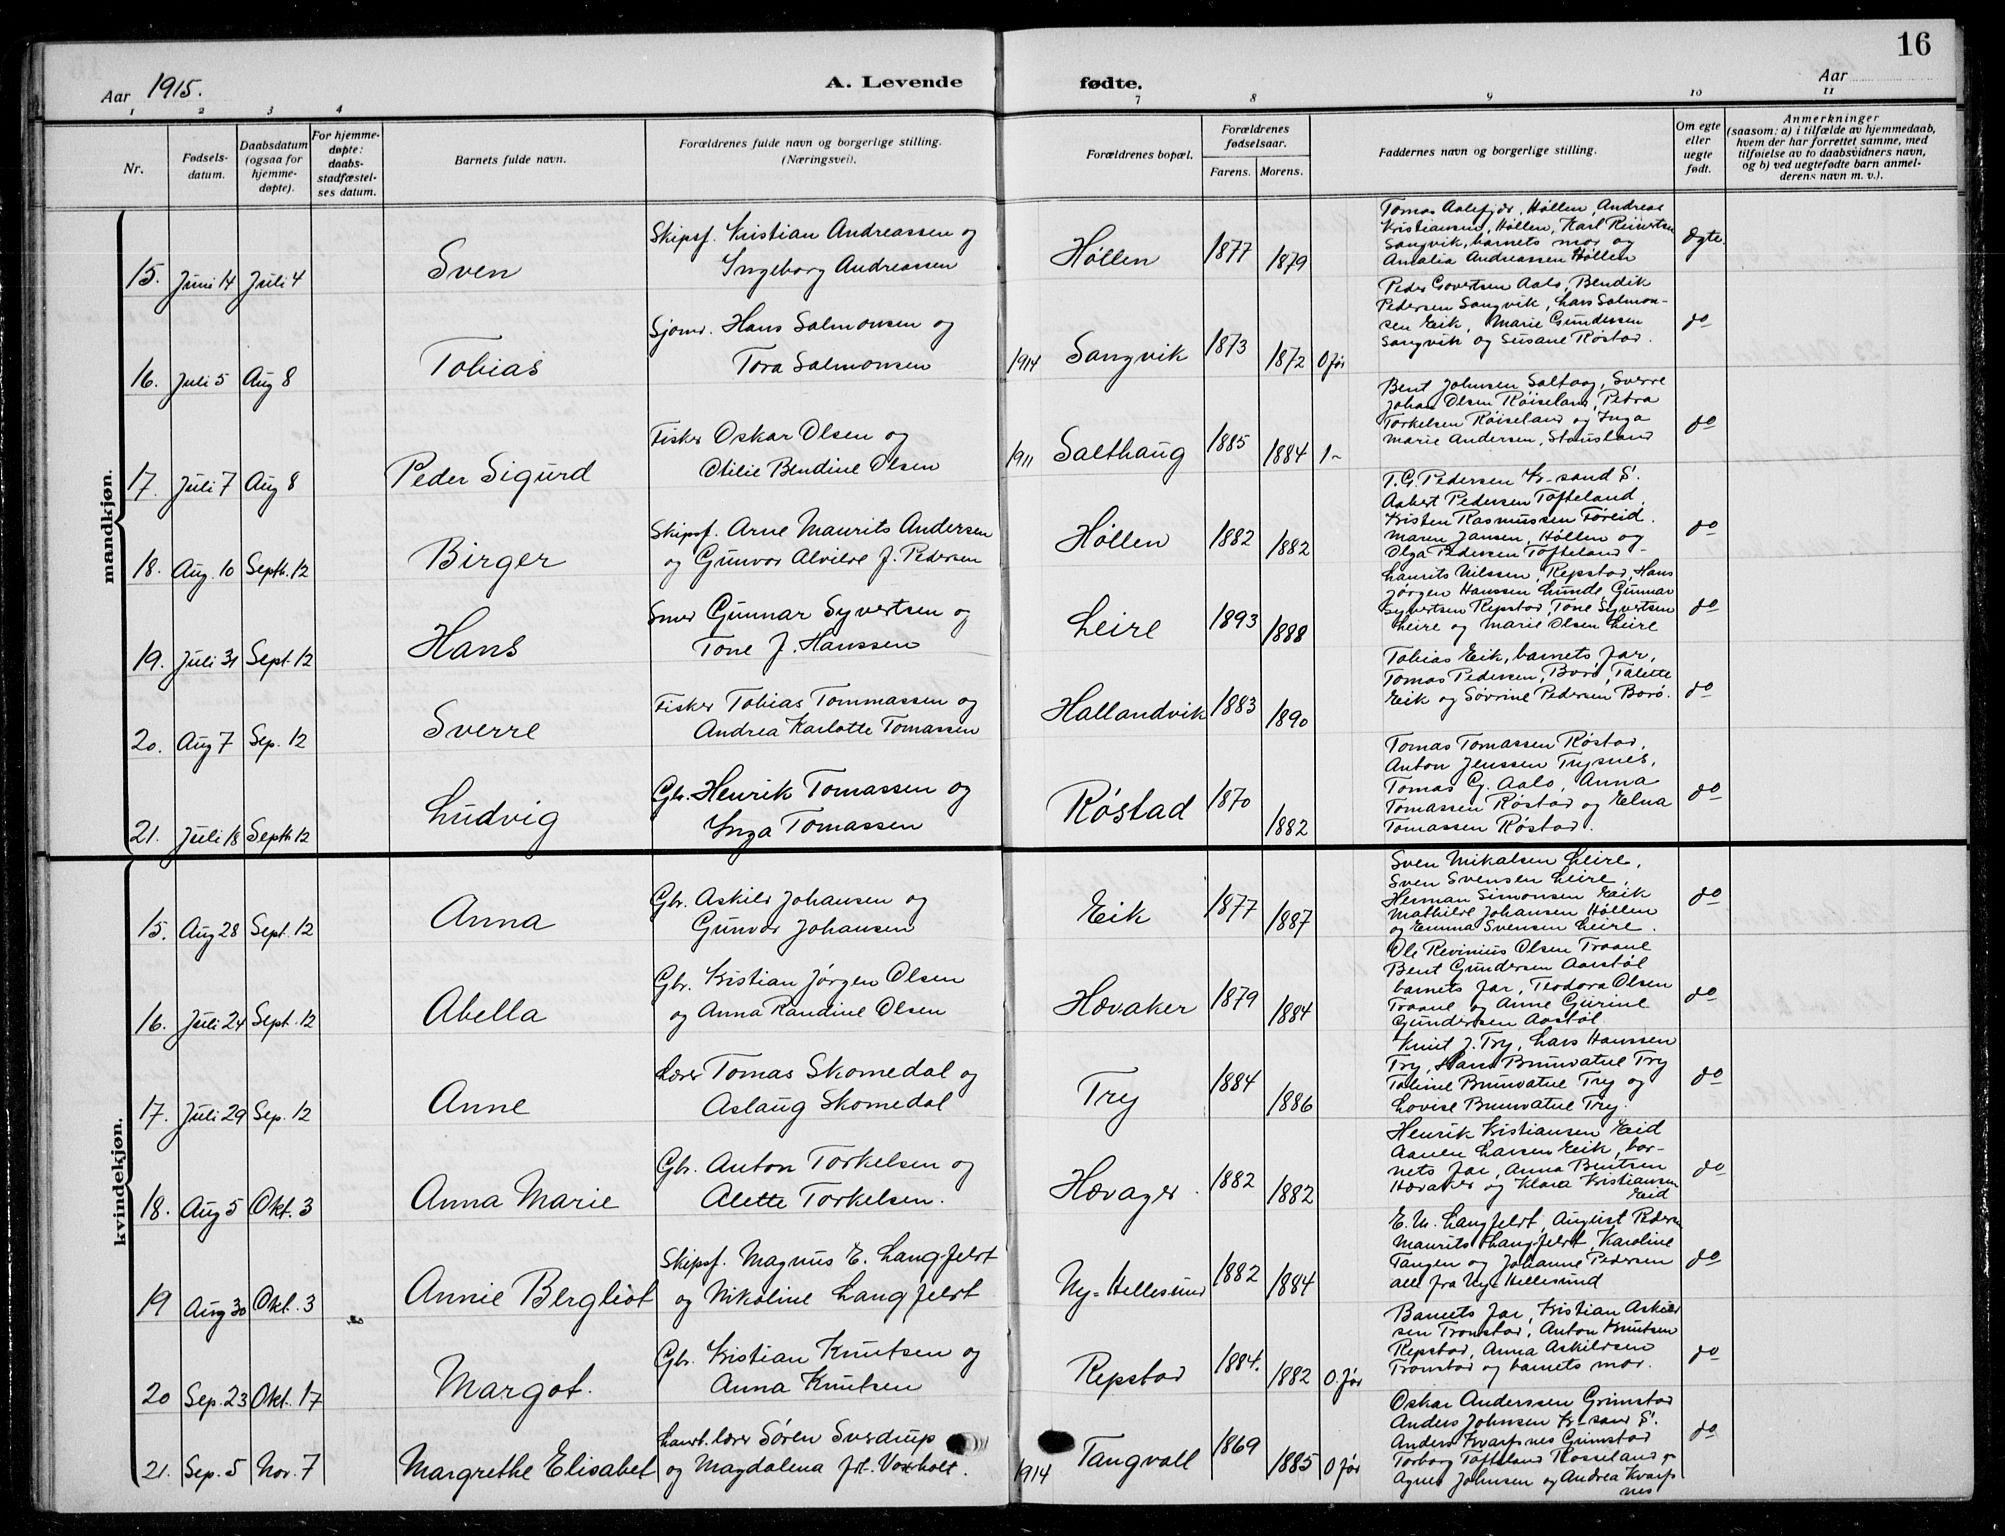 16
Aar 1915.
A. Levende fødte.
Aar
1 2 3 4 7 8 9 10 11
Nr.
Fødsels-
datum.
Daabsdatum
(ogsaa for
hjemme-
døpte).
For hjemme-
døpte:
daabs-
stadfæstel-
ses datum.
Barnets fulde navn.
Forældrenes fulde navn og borgerlige stilling.
(Næringsvei).
Forældrenes bopæl.
Forældrenes
fødselsaar.
Farens. Morens.
Faddernes navn og borgerlige stilling.
Om egte
eller
uegte
født.
Anmerkninger
(saasom: a) i tilfælde av hjemmedaab,
hvem der har forrettet samme, med
tilføielse av to daabsvidners navn,
og b) ved uegtefødte barn anmel-
derens navn m. v.).
mandkjøn.
15. Juni 14 Juli 4 Sven
Skipsf. Kristian Andreassen og
Ingeborg Andreassen
Høllen 1877 1879
Tomas Aalefjær, Høllen, Andreas
Kristiansen, Høllen, Karl Reinertsen
Sangvik, barnets mor og
Amalia Andreassen Høllen
Ægte.
16. Juli 5 Aug 8 Tobias
Sjøm. Hans Salmonsen og
Tora Salmonsen
1914 Sangvik 1873 1872 0 før
Peder Govertsen Aalo, Bendik
Pedersen Sangvik, Lars Salmon-
sen Eik, Marie Gundersen
Sangvik og Susane Røstad.
do
17. Juli 7 Aug 8 Peder Sigurd
Fisker Oskar Olsen og
Otilie Bendine Olsen
1911 Salthaug 1885 1884 1 ~
Bent Johnsen Saltaag, Sverre
Johan Olsen Røiseland, Petra
Torkelsen Røiseland og Inga
Marie Andersen, Stausland
do
18. Aug. 10 Septb. 12 Birger
Skipsf. Arne Maurits Andersen
og Gunvor Alvilde J. Pedersen
Høllen 1882 1882
T. G. Pedersen Kr-sand S.
Aabert Pedersen Tofteland,
Kristen Rasmussen Føreid.
Maren Jansen, Høllen og
Olga Pedersen Tofteland -
do
19. Juli 31 Sept. 12 Hans
Smed Gunnar Syvertsen og
Tone J. Hanssen
Leire 1893 1888
Laurits Nilssen, Repstad, Hans
Jørgen Hanssen Lunde, Gunnar
Syvertsen Repstad, Tone Syvertsen
Leire og Marie Olsen Leire
do
20. Aug 7 Sep. 12 Sverre
Fisker Tobias Tommassen og
Andrea Karlotte Tomassen
Hallandvik 1883 1890
Tobias Eik, barnets far,
Tomas Pedersen, Borø, Talette
Eik og Sørine Pedersen Borø.
do
21. Juli 18 Septb 12 Ludvig
Gbr. Henrik Tomassen og
Inga Tomassen
Røstad 1870 1882
Tomas Tomassen Røstad,
Anton Jenssen Trysnes,
Tomas G. Aalo, Anna
Tomassen Røstad og Elna
Tomassen Røstad.
do
kvindekjøn.
15. Aug 28 Sept. 12 Anna
Gbr. Askild Johansen og
Gunvor Johansen
Eik 1877 1887
Sven Mikalsen Leire,
Sven Svensen Leire,
Herman Simonsen Eik
Mathilde Johansen, Høllen
og Emma Svensen Leire.
do
16. Juli 24 Sept. 12 Abella
Gbr. Kristian Jørgen Olsen
og Anna Randine Olsen
Hævaker 1879 1884
Ole Revinius Olsen Traane
Bent Gundersen Aarstøl
barnets far, Teodora Olsen
Traane og Anne Gurine
Gundersen Aastøl
do
17. Juli 29 Sep. 12 Anne
Lærer Tomas Skomedal og
Aslaug Skomedal
Try 1884 1886
Knut J. Try, Lars Hanssen
Try, Hans Brunvatne Try
Taline Brunvatne Try og
Lovise Brunvatne Try.
do
18. Aug 5 Okt. 3 Anna Marie
Gbr. Anton Torkelsen og
Alette Torkelsen.
Hævager. 1882 1882
Henrik Kristiansen Eid
Aanen Larsen Eik, bar-
nets far, Anna Bentsen
Hævaker og Klara Kristiansen
Eid
do
19 Aug 30 Okt. 3 Annie Bergliot
Skipsf. Magnus E. Langfeldt
og Nikoline Langfeldt
Ny=Hellesund 1882 1884
E. M. Langfeldt, August Peders
Maurits Langfeldt, Karoline
Tangen og Johanne Pedersen
alle fra Ny-Hellesund
do
20 Sep. 23 Okt. 17 Margot.
Gbr. Kristian Knutsen og
Anna Knutsen
Repstad 1884. 1882 0. før
Barnets far, Kristian Askild
sen Tronstad, Anton Knutsen
Repstad, Anna Askildsen
Tronstad og barnets mor.
do
21. Sep. 5 Nov. 7 Margrethe Elisabet
Søren Sverdrup
og Magdalena f. Voxholt.
1914 Tangvall 1869 1885 0 før
Oskar Anderssen Grimstad
Anders Johnsen Kr-sand S.
Anders Kvarfsnes Grimstad
Torborg Tofteland Rosseland &
Agnes Johnsen og Andrea Kvarfs
nes
do